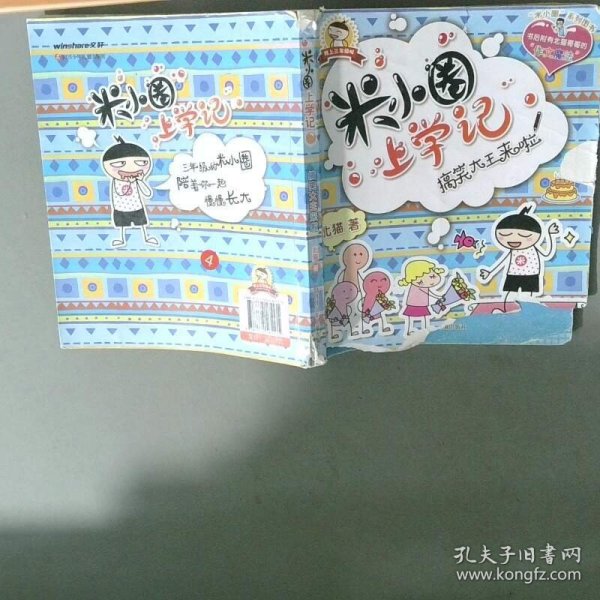 winshare文轩
米小圈
上学记
三年级的米小圈
陪着你一起
慢慢长大
4
米小圈
上学记
米小圈
上学记
搞笑大王来啦!
北猫 著
孔夫子旧书网
www.kongfz.com